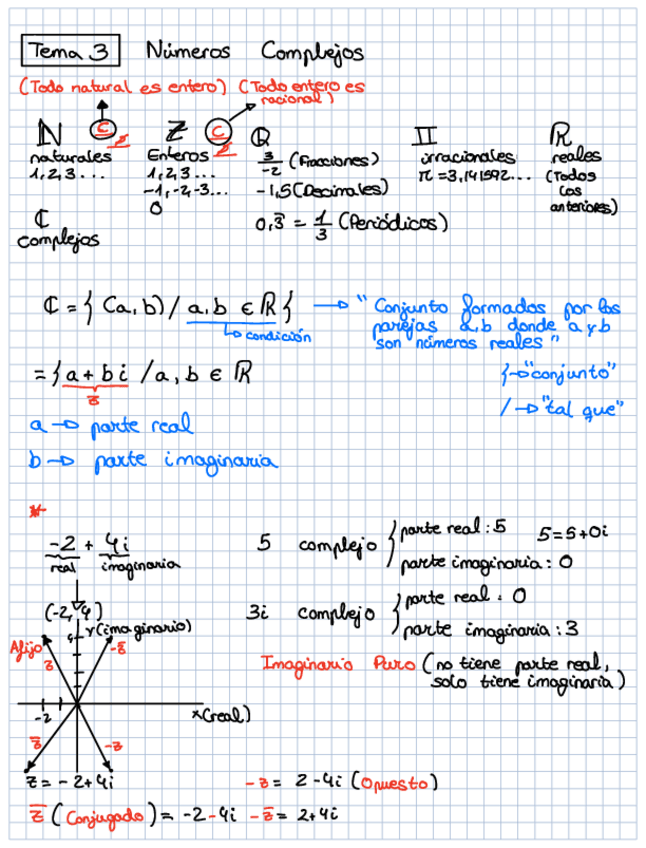 Tema 3 Números Complejos
(Todo natural es entero) (Todo entero es racional)
ℕ ⊂ ℤ ⊂ ℚ 𝕀 ℝ
naturales Enteros 3/-2 (Fracciones) irracionales reales
1, 2, 3 ... 1, 2, 3 ... -1,5 (Decimales) π = 3,141592... (Todos los anteriores)
-1, -2, -3 ...
0 0,3̄ = 1/3 (Periódicos)
ℂ
complejos
ℂ = { (a, b) / a, b ∈ ℝ } → "Conjunto formados por las
parejas a,b donde a y b
son números reales"
↳ condición
= { a + bi / a, b ∈ ℝ
z
{ → "conjunto"
/ → "tal que"
a → parte real
b → parte imaginaria
*
-2 + 4i
real imaginaria
5 complejo { parte real: 5 5 = 5 + 0i
parte imaginaria: 0
(-2, 4)
3i complejo { parte real: 0
parte imaginaria: 3
Y (imaginario)
4
Afijo
z
-z̄
Imaginario Puro (no tiene parte real,
solo tiene imaginaria)
-2
x (real)
z̄
-z
z = -2 + 4i -z = 2 - 4i (Opuesto)
z̄ (Conjugado) = -2 - 4i -z̄ = 2 + 4i